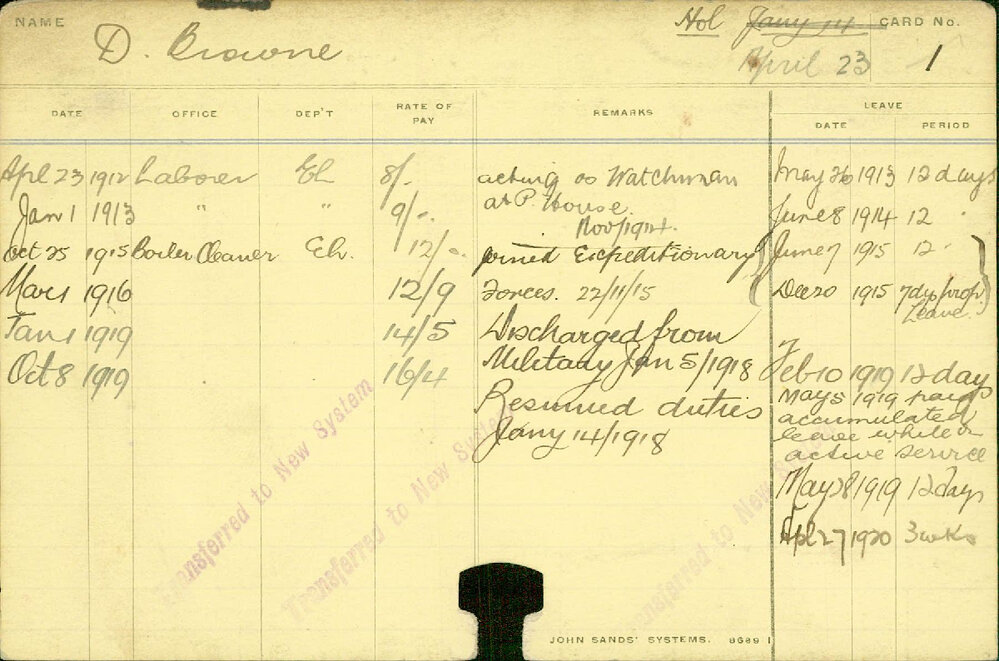 NAME D. Browne Hol Jany 14 CARD No.
April 23 1
DATE OFFICE DEP'T RATE OF PAY REMARKS LEAVE
DATE PERIOD
Apl 23 1912 Laborer Eh 8/- acting as Watchman May 26 1913 12 days
Jan 1 1913 " " 9/- at P. House June 8 1914 12 "
Nov/1914.
Oct 25 1915 Boiler Cleaner Eh. 12/- joined Expeditionary June 7 1915 12 "
Mar 1 1916 12/9 Forces. 22/11/15 Dec 20 1915 7 dys prop.
Leave.
Jan 1 1919 14/5 Discharged from
Oct 8 1919 16/4 Military Jan 5/1918 Feb 10 1919 12 days
Resumed duties May 5 1919 paid
Jany 14/1918 accumulated
leave while on
active service
May 28 1919 12 days
Apl 27 1920 3 wks
Transferred to New System
Transferred to New System
Transferred to New System
JOHN SANDS' SYSTEMS. 8689